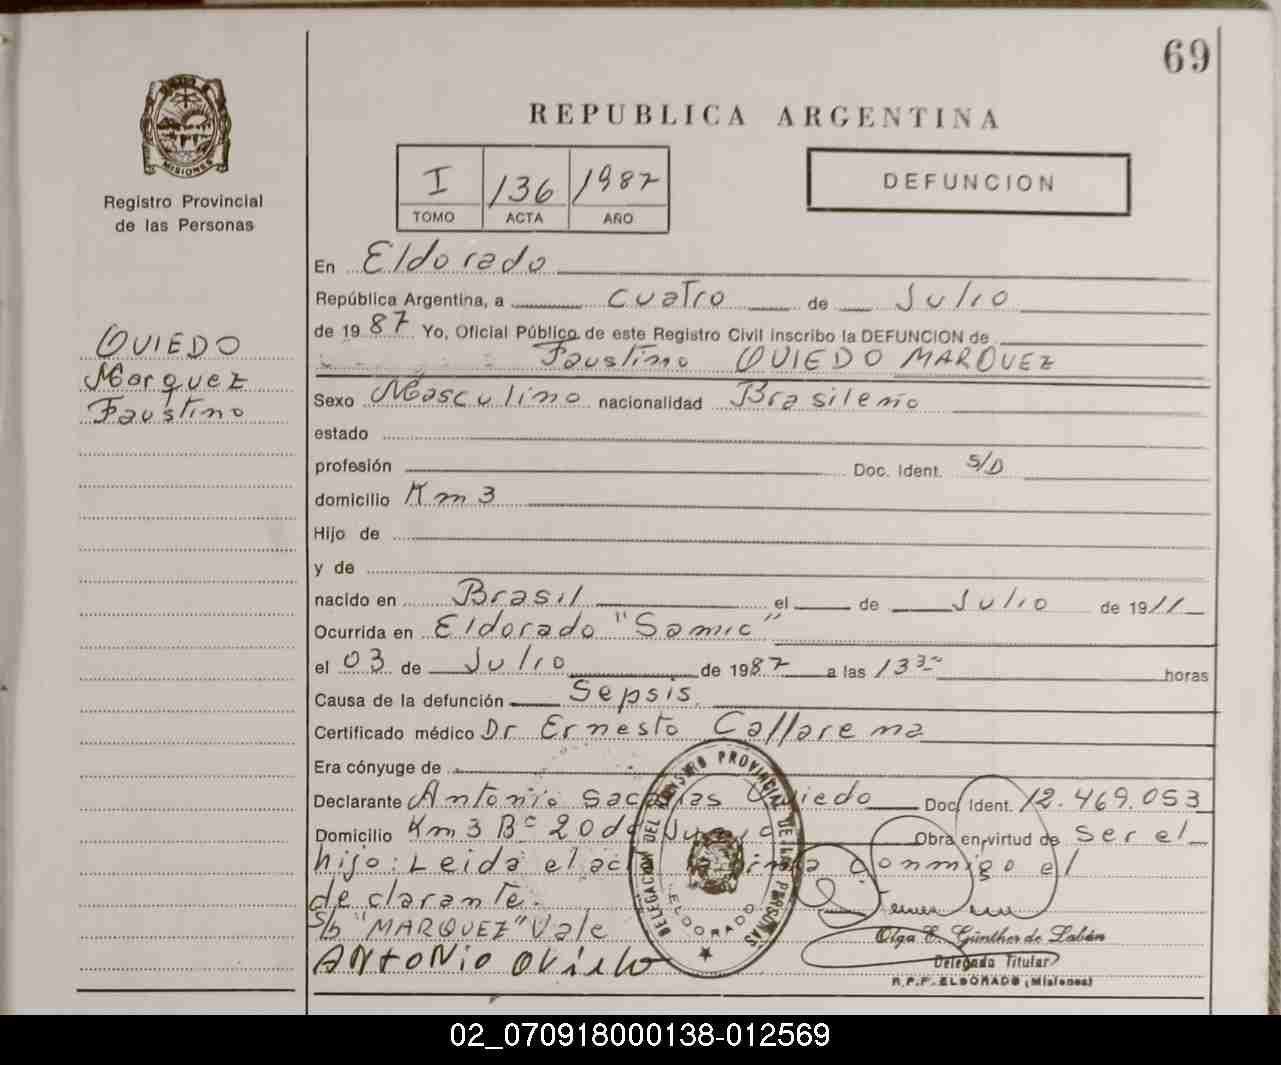 69
REPUBLICA ARGENTINA
MISIONES
Registro Provincial
de las Personas
I 136 1987
TOMO ACTA AÑO
DEFUNCION
OVIEDO
Marquez
Faustino
En Eldorado
República Argentina, a cuatro de Julio
de 1987 Yo, Oficial Público de este Registro Civil inscribo la DEFUNCION de
Faustino OVIEDO MARQUEZ
Sexo Masculino nacionalidad Brasileño
estado
profesión Doc. Ident. S/D
domicilio Km 3
Hijo de
y de
nacido en Brasil el de Julio de 1911
Ocurrida en Eldorado "Samic"
el 03 de Julio de 1987 a las 13 30 horas
Causa de la defunción Sepsis
Certificado médico Dr Ernesto Callarema
Era cónyuge de
Declarante Antonio Oviedo Doc. Ident. 12.469.053
Domicilio Km 3 Bº 20 de Obra en virtud de ser el
hijo: Leida el conmigo el
declarante.
S/b "MARQUEZ" Vale
ANTONIO OViedo
DELEGACION DEL REGISTRO PROVINCIAL DE LAS PERSONAS
ELDORADO
Olga E. Günther de Labán
Delegada Titular
R.P.P. ELDORADO (Misiones)
02_070918000138-012569